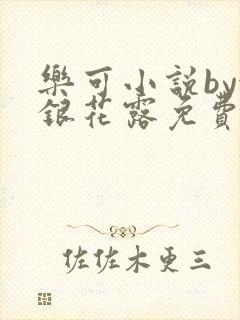 樂可小説by
銀花露免費
佐佐木更三